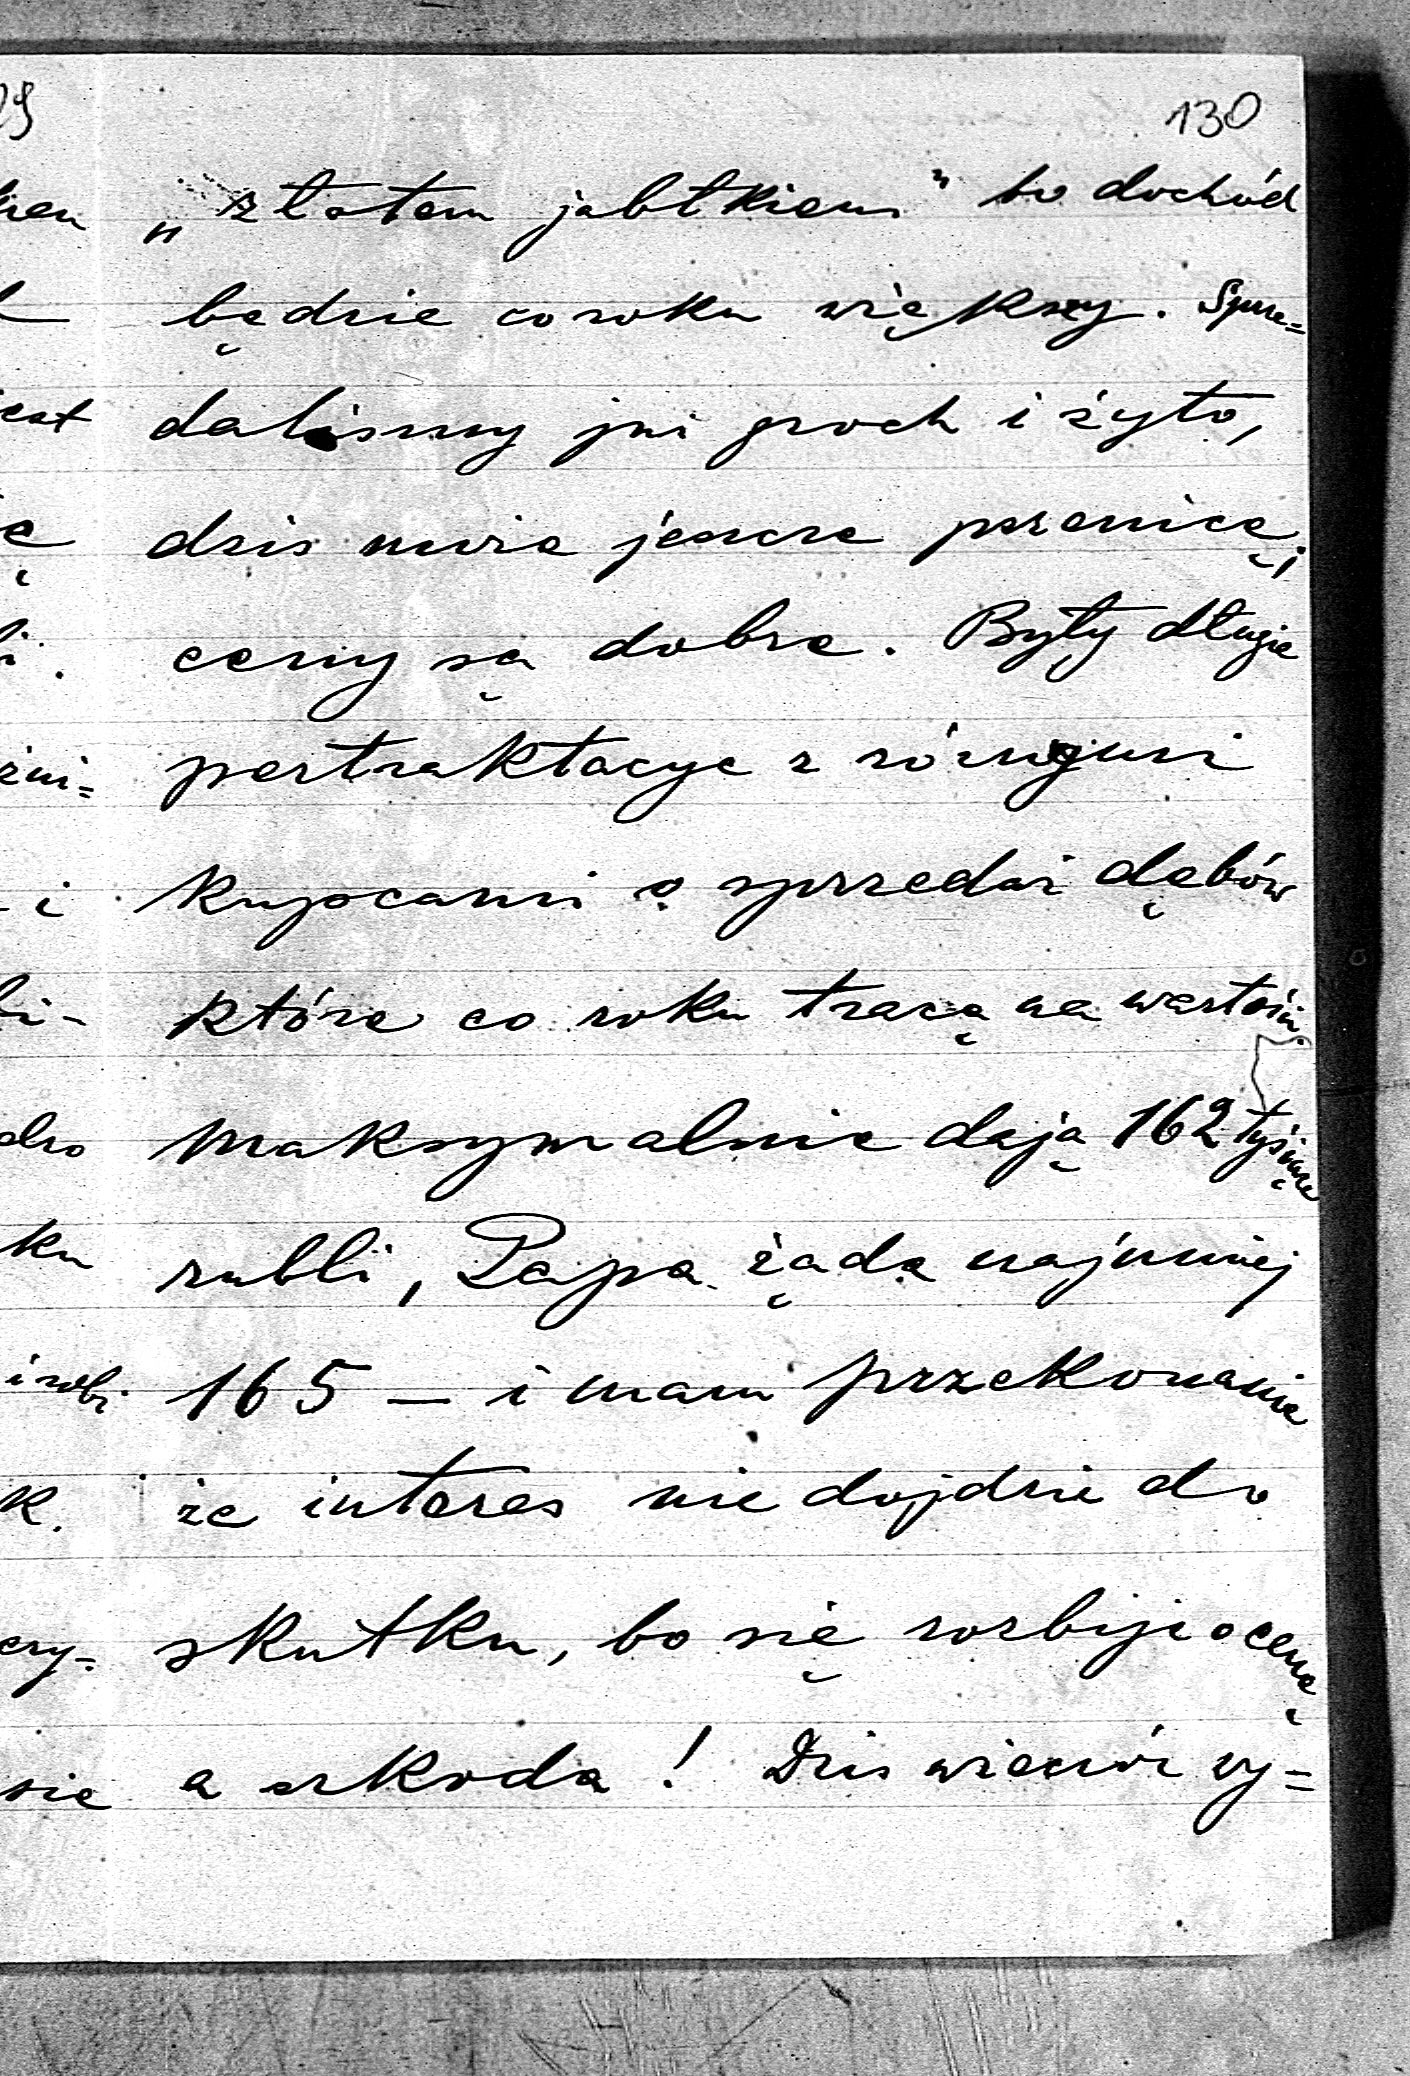 130
„złotem jabłkiem" to dochód
będzie co roku większy. Sprze=
daliśmy już groch i żyto,
dziś nurza jeszcze pszenicę;
ceny są dobre. Były długie
pertraktacye z różnymi
kupcami o sprzedaż dębów
które co roku tracą na wartości.
Maksymalnie dają 162 tysiące
rubli, Papa żąda najmniej
165 — i mam przekonanie
że interes nie dojdzie do
skutku, bo się rozbije o cenę
a szkoda! Dziś wieczór wy=